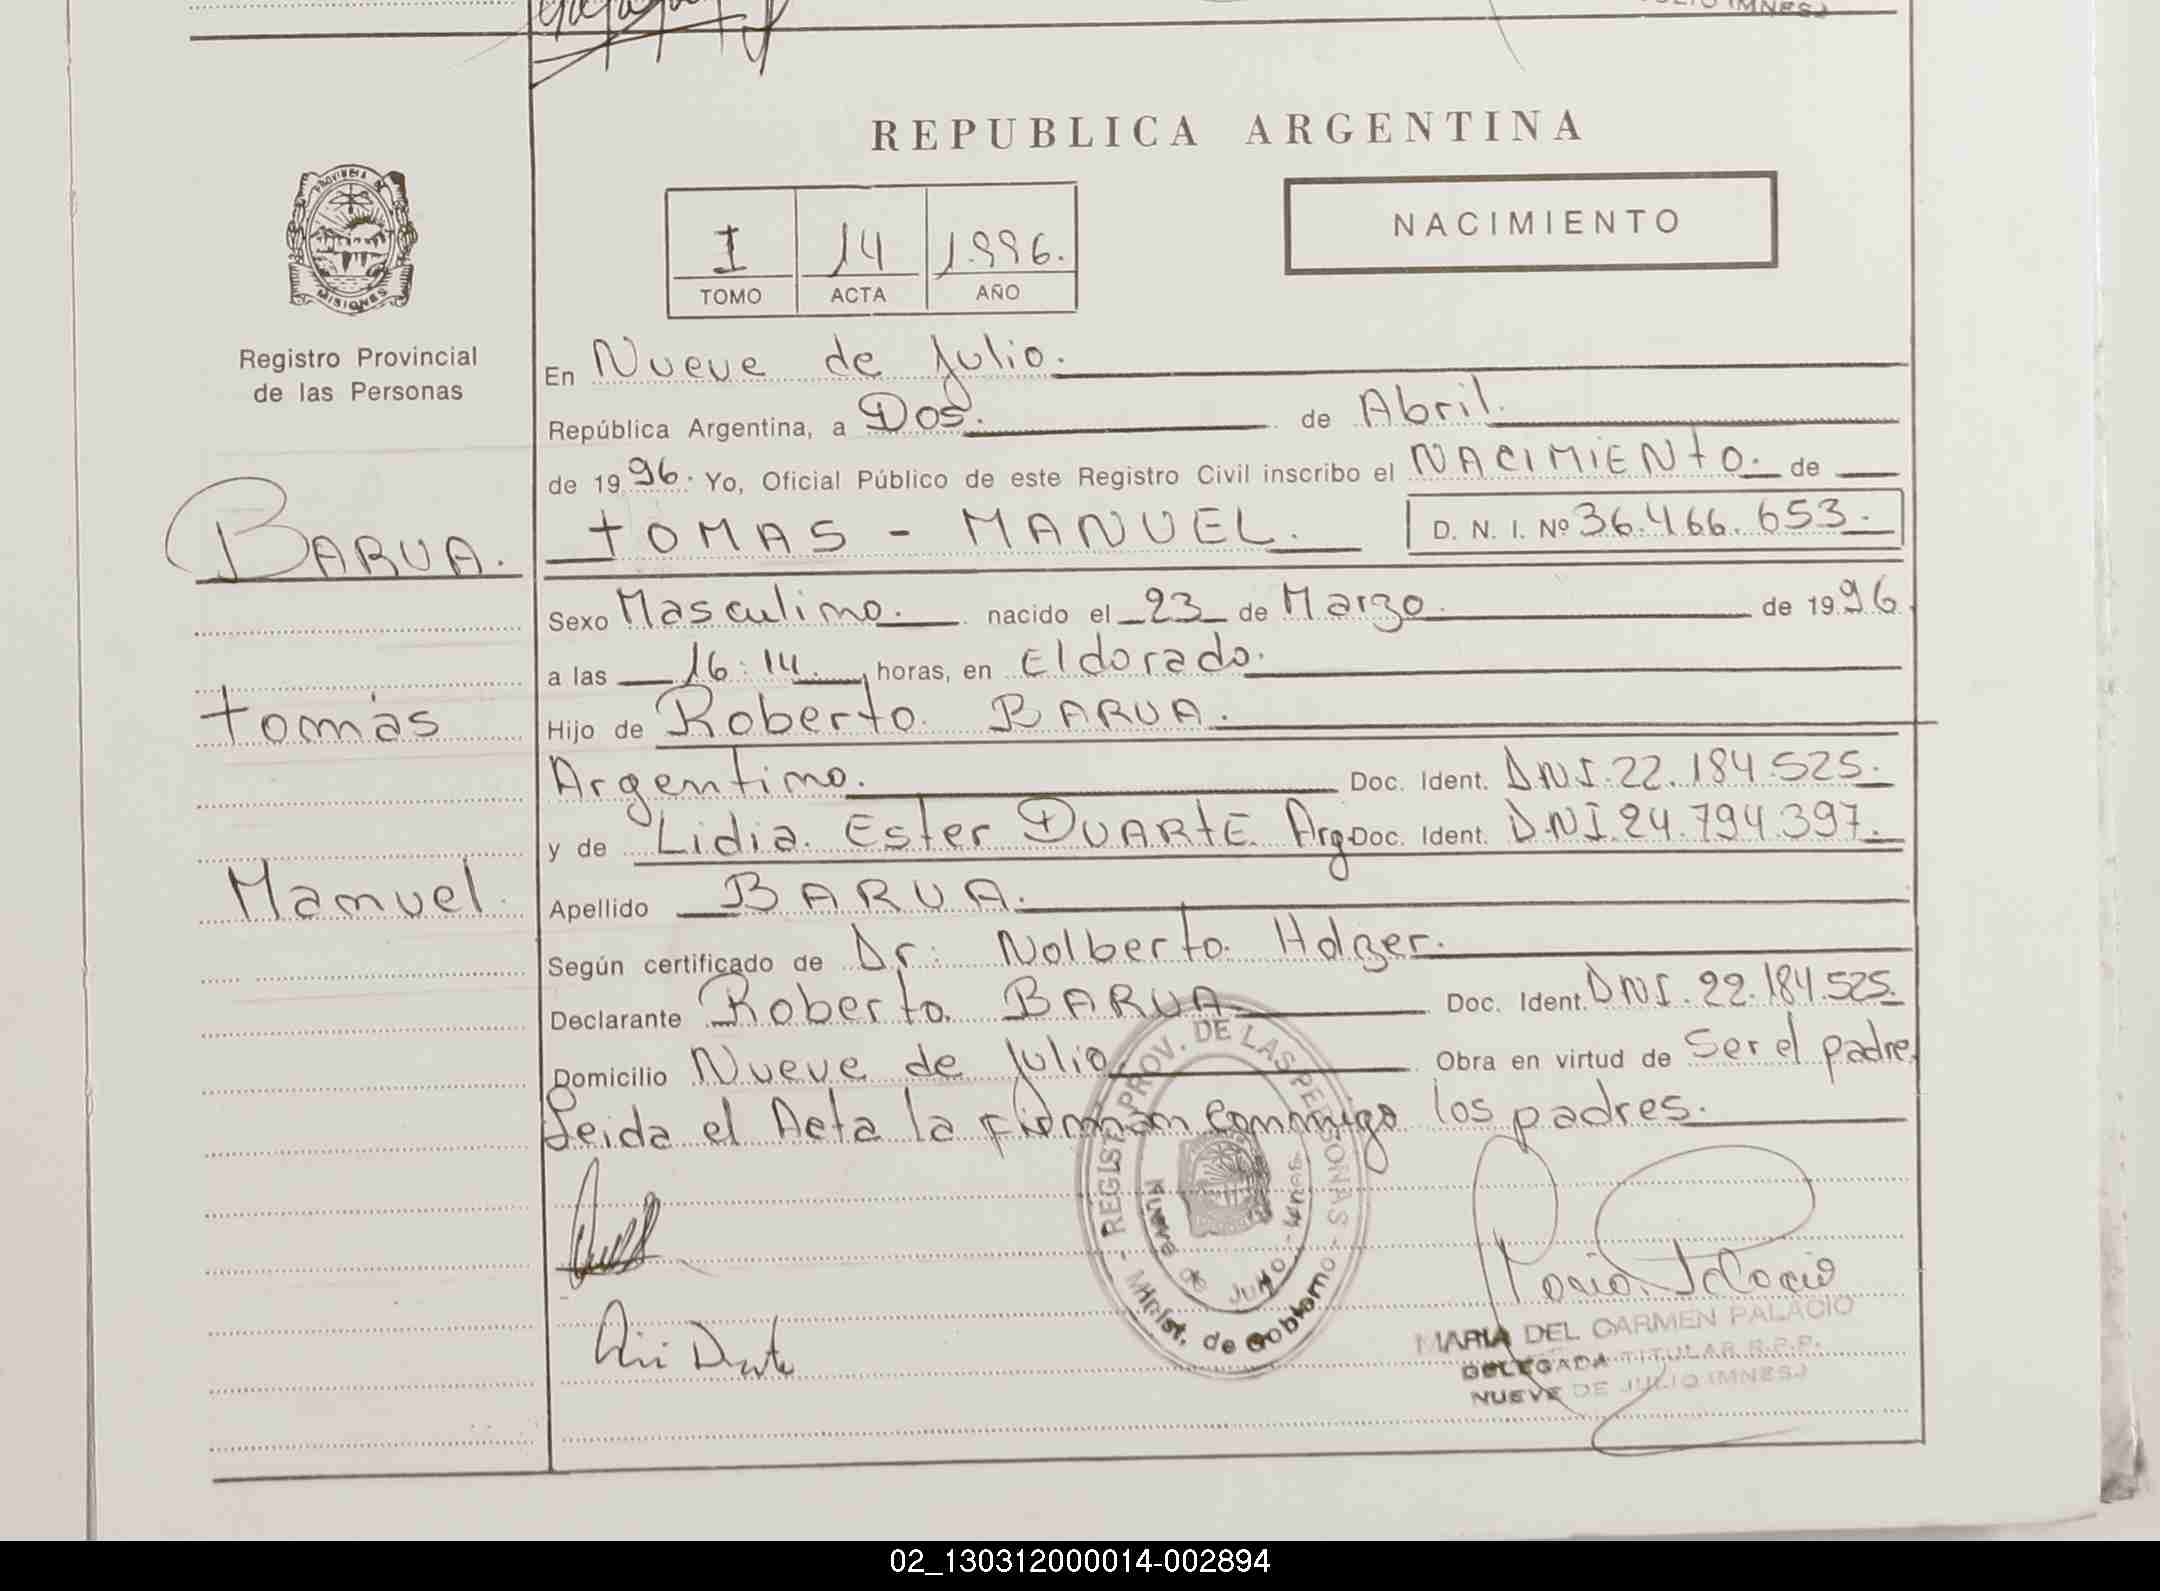 REPUBLICA ARGENTINA
PROVINCIA DE
MISIONES
NACIMIENTO
I 14 1.996.
TOMO ACTA AÑO
Registro Provincial
de las Personas
En Nueve de Julio.
República Argentina, a Dos. de Abril.
de 19 96. Yo, Oficial Público de este Registro Civil inscribo el NACIMIENTO. de
BARUA.
TOMAS - MANUEL. D. N. I. Nº 36.466.653.
Sexo Masculino. nacido el 23 de Marzo. de 19 96
a las 16:14. horas, en Eldorado.
Tomás
Hijo de Roberto BARUA.
Argentino. Doc. Ident. DNI.22.184.525.
y de Lidia Ester DUARTE Arg. Doc. Ident. DNI.24.794.397.
Manuel.
Apellido BARUA.
Según certificado de Dr: Nolberto Holzer.
Declarante Roberto BARUA Doc. Ident. DNI.22.184.525.
Domicilio Nueve de Julio Obra en virtud de Ser el padre.
Leida el Acta la firman conmigo los padres.
- REGIST. PROV. DE LAS PERSONAS -
Minist. de Gobierno
Nueve de Julio
MARIA DEL CARMEN PALACIO
DELEGADA TITULAR R.P.P.
NUEVE DE JULIO (MNES.)
02_130312000014-002894